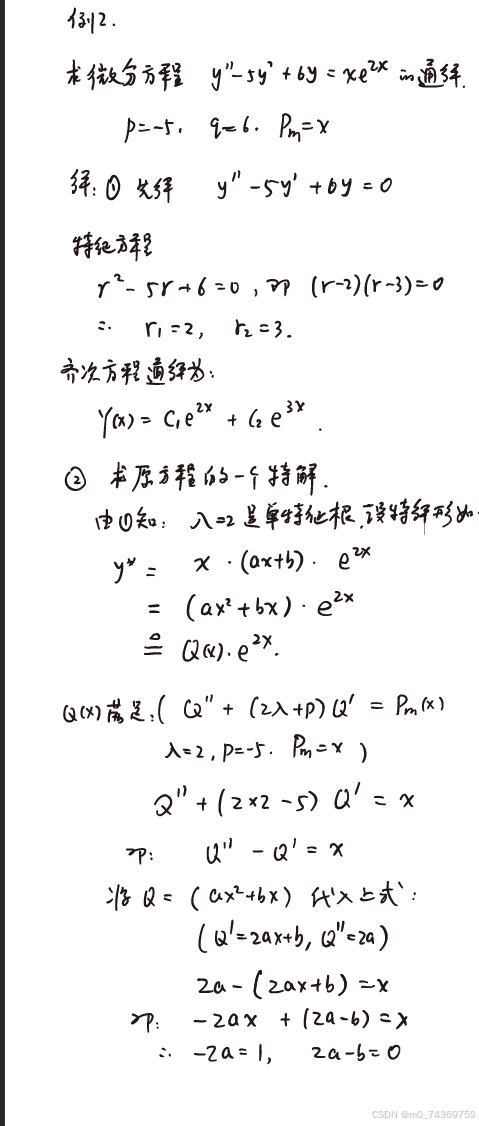 例2.
求微分方程 y"-5y'+6y=xe^{2x} 的通解.
p=-5. q=6. P_m=x
解:① 先解 y"-5y'+6y=0
特征方程
r²-5r+6=0, 即 (r-2)(r-3)=0
∴ r₁=2, r₂=3.
齐次方程通解为:
Y(x)=C₁e^{2x}+C₂e^{3x}.
② 求原方程的一个特解.
由①知: λ=2是单特征根,设特解形如
y*= x·(ax+b)·e^{2x}
=(ax²+bx)·e^{2x}
≙ Q(x)·e^{2x}.
Q(x)满足:( Q"+(2λ+p)Q'=P_m(x)
λ=2, p=-5. P_m=x )
Q"+(2×2-5)Q'=x
即: Q"-Q'=x
将Q=(ax²+bx)代入上式:
(Q'=2ax+b, Q"=2a)
2a-(2ax+b)=x
即: -2ax+(2a-b)=x
∴ -2a=1, 2a-b=0
CSDN @m0_74369759